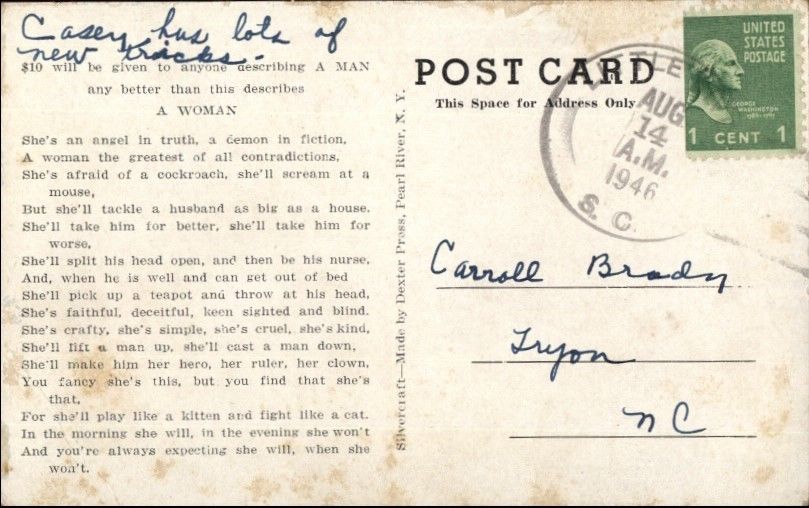 Casey has lots of
new tracks.
$10 will be given to anyone describing A MAN
any better than this describes
A WOMAN
She's an angel in truth, a demon in fiction,
A woman the greatest of all contradictions,
She's afraid of a cockroach, she'll scream at a
mouse,
But she'll tackle a husband as big as a house.
She'll take him for better, she'll take him for
worse,
She'll split his head open, and then be his nurse,
And, when he is well and can get out of bed
She'll pick up a teapot and throw at his head,
She's faithful, deceitful, keen sighted and blind.
She's crafty, she's simple, she's cruel, she's kind,
She'll lift a man up, she'll cast a man down,
She'll make him her hero, her ruler, her clown,
You fancy she's this, but you find that she's
that,
For she'll play like a kitten and fight like a cat.
In the morning she will, in the evening she won't
And you're always expecting she will, when she
won't.
Silvercraft—Made by Dexter Press, Pearl River, N. Y.
POST CARD
This Space for Address Only
LITTLE
AUG
14
A.M.
1946
S. C.
UNITED
STATES
POSTAGE
GEORGE
WASHINGTON
1 CENT 1
Carroll Brady
Tryon
NC